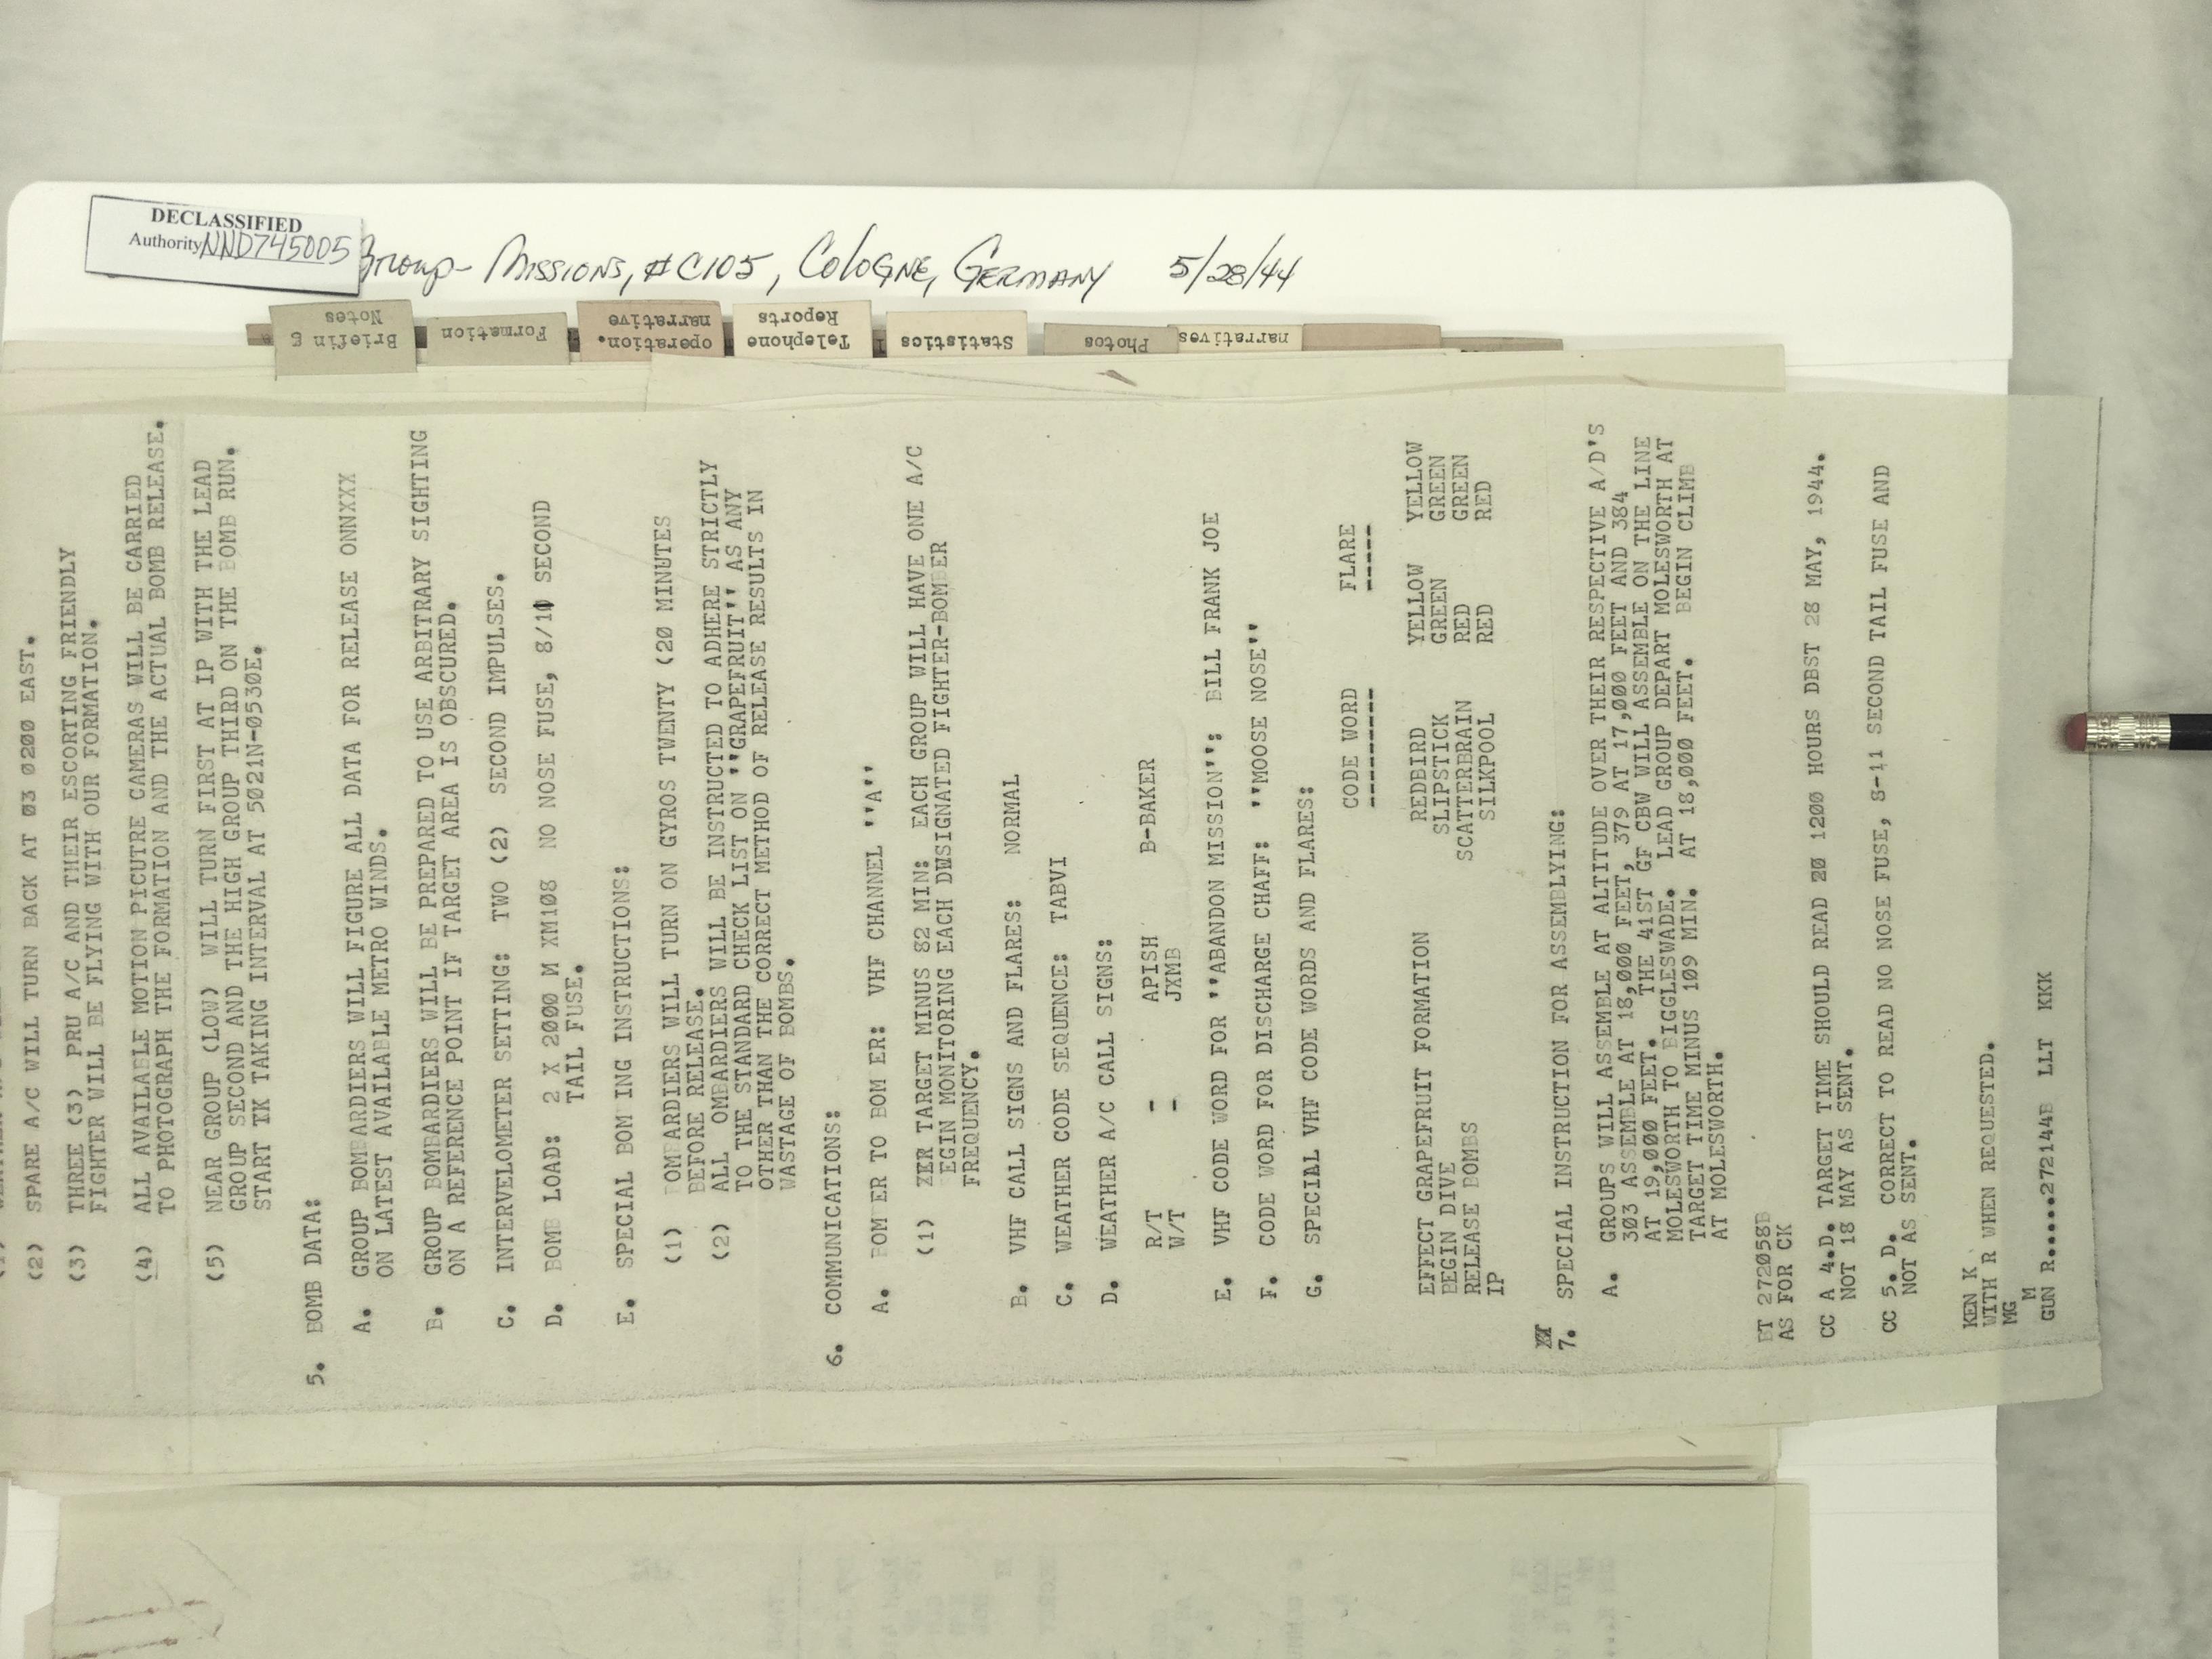 DECLASSIFIED
Authority NND745005
Group- Missions, #C105, Cologne, Germany 5/28/44
Briefing
Notes
Formation
operation.
narrative
Telephone
Reports
Statistics
Photos
narratives
(2) SPARE A/C WILL TURN BACK AT 03 0200 EAST.
(3) THREE (3) PRU A/C AND THEIR ESCORTING FRIENDLY
FIGHTER WILL BE FLYING WITH OUR FORMATION.
(4) ALL AVAILABLE MOTION PICUTRE CAMERAS WILL BE CARRIED
TO PHOTOGRAPH THE FORMATION AND THE ACTUAL BOMB RELEASE.
(5) NEAR GROUP (LOW) WILL TURN FIRST AT IP WITH THE LEAD
GROUP SECOND AND THE HIGH GROUP THIRD ON THE BOMB RUN.
START TK TAKING INTERVAL AT 5021N-0530E.
5. BOMB DATA:
A. GROUP BOMBARDIERS WILL FIGURE ALL DATA FOR RELEASE ONNXXX
ON LATEST AVAILABLE METRO WINDS.
B. GROUP BOMBARDIERS WILL BE PREPARED TO USE ARBITRARY SIGHTING
ON A REFERENCE POINT IF TARGET AREA IS OBSCURED.
C. INTERVELOMETER SETTING: TWO (2) SECOND IMPULSES.
D. BOMB LOAD: 2 X 2000 M XM108 NO NOSE FUSE, 8/10 SECOND
TAIL FUSE.
E. SPECIAL BOM ING INSTRUCTIONS:
(1) BOMBARDIERS WILL TURN ON GYROS TWENTY (20 MINUTES
BEFORE RELEASE.
(2) ALL OMBARDIERS WILL BE INSTRUCTED TO ADHERE STRICTLY
TO THE STANDARD CHECK LIST ON ''GRAPEFRUIT'' AS ANY
OTHER THAN THE CORRECT METHOD OF RELEASE RESULTS IN
WASTAGE OF BOMBS.
6. COMMUNICATIONS:
A. BOM ER TO BOM ER: VHF CHANNEL ''A''
(1) ZER TARGET MINUS 82 MIN: EACH GROUP WILL HAVE ONE A/C
EGIN MONITORING EACH DWSIGNATED FIGHTER-BOMBER
FREQUENCY.
B. VHF CALL SIGNS AND FLARES: NORMAL
C. WEATHER CODE SEQUENCE: TABVI
D. WEATHER A/C CALL SIGNS:
R/T - APISH B-BAKER
W/T - JXMB
E. VHF CODE WORD FOR ''ABANDON MISSION'': BILL FRANK JOE
F. CODE WORD FOR DISCHARGE CHAFF: ''MOOSE NOSE''
G. SPECIAL VHF CODE WORDS AND FLARES:
CODE WORD FLARE
--------- -----
EFFECT GRAPEFRUIT FORMATION REDBIRD YELLOW YELLOW
BEGIN DIVE SLIPSTICK GREEN GREEN
RELEASE BOMBS SCATTERBRAIN RED GREEN
IP SILKPOOL RED RED
7. SPECIAL INSTRUCTION FOR ASSEMBLYING:
A. GROUPS WILL ASSEMBLE AT ALTITUDE OVER THEIR RESPECTIVE A/D'S
303 ASSEMBLE AT 18,000 FEET, 379 AT 17,000 FEET AND 384
AT 19,000 FEET. THE 41ST GF CBW WILL ASSEMBLE ON THE LINE
MOLESWORTH TO BIGGLESWADE. LEAD GROUP DEPART MOLESWORTH AT
TARGET TIME MINUS 109 MIN. AT 18,000 FEET. BEGIN CLIMB
AT MOLESWORTH.
BT 272058B
AS FOR CK
CC A 4.D. TARGET TIME SHOULD READ 20 1200 HOURS DBST 28 MAY, 1944.
NOT 18 MAY AS SENT.
CC 5. D. CORRECT TO READ NO NOSE FUSE, 8-11 SECOND TAIL FUSE AND
NOT AS SENT.
KEN K
WITH R WHEN REQUESTED.
MG M
GUN R.....272144B LLT KKK